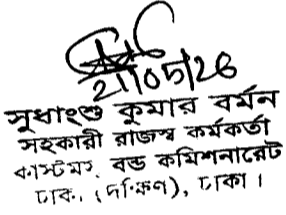 21/05/26
সুধাংশু কুমার বর্মন
সহকারী রাজস্ব কর্মকর্তা
কাস্টমস্ বন্ড কমিশনারেট
ঢাকা (দক্ষিণ), ঢাকা।